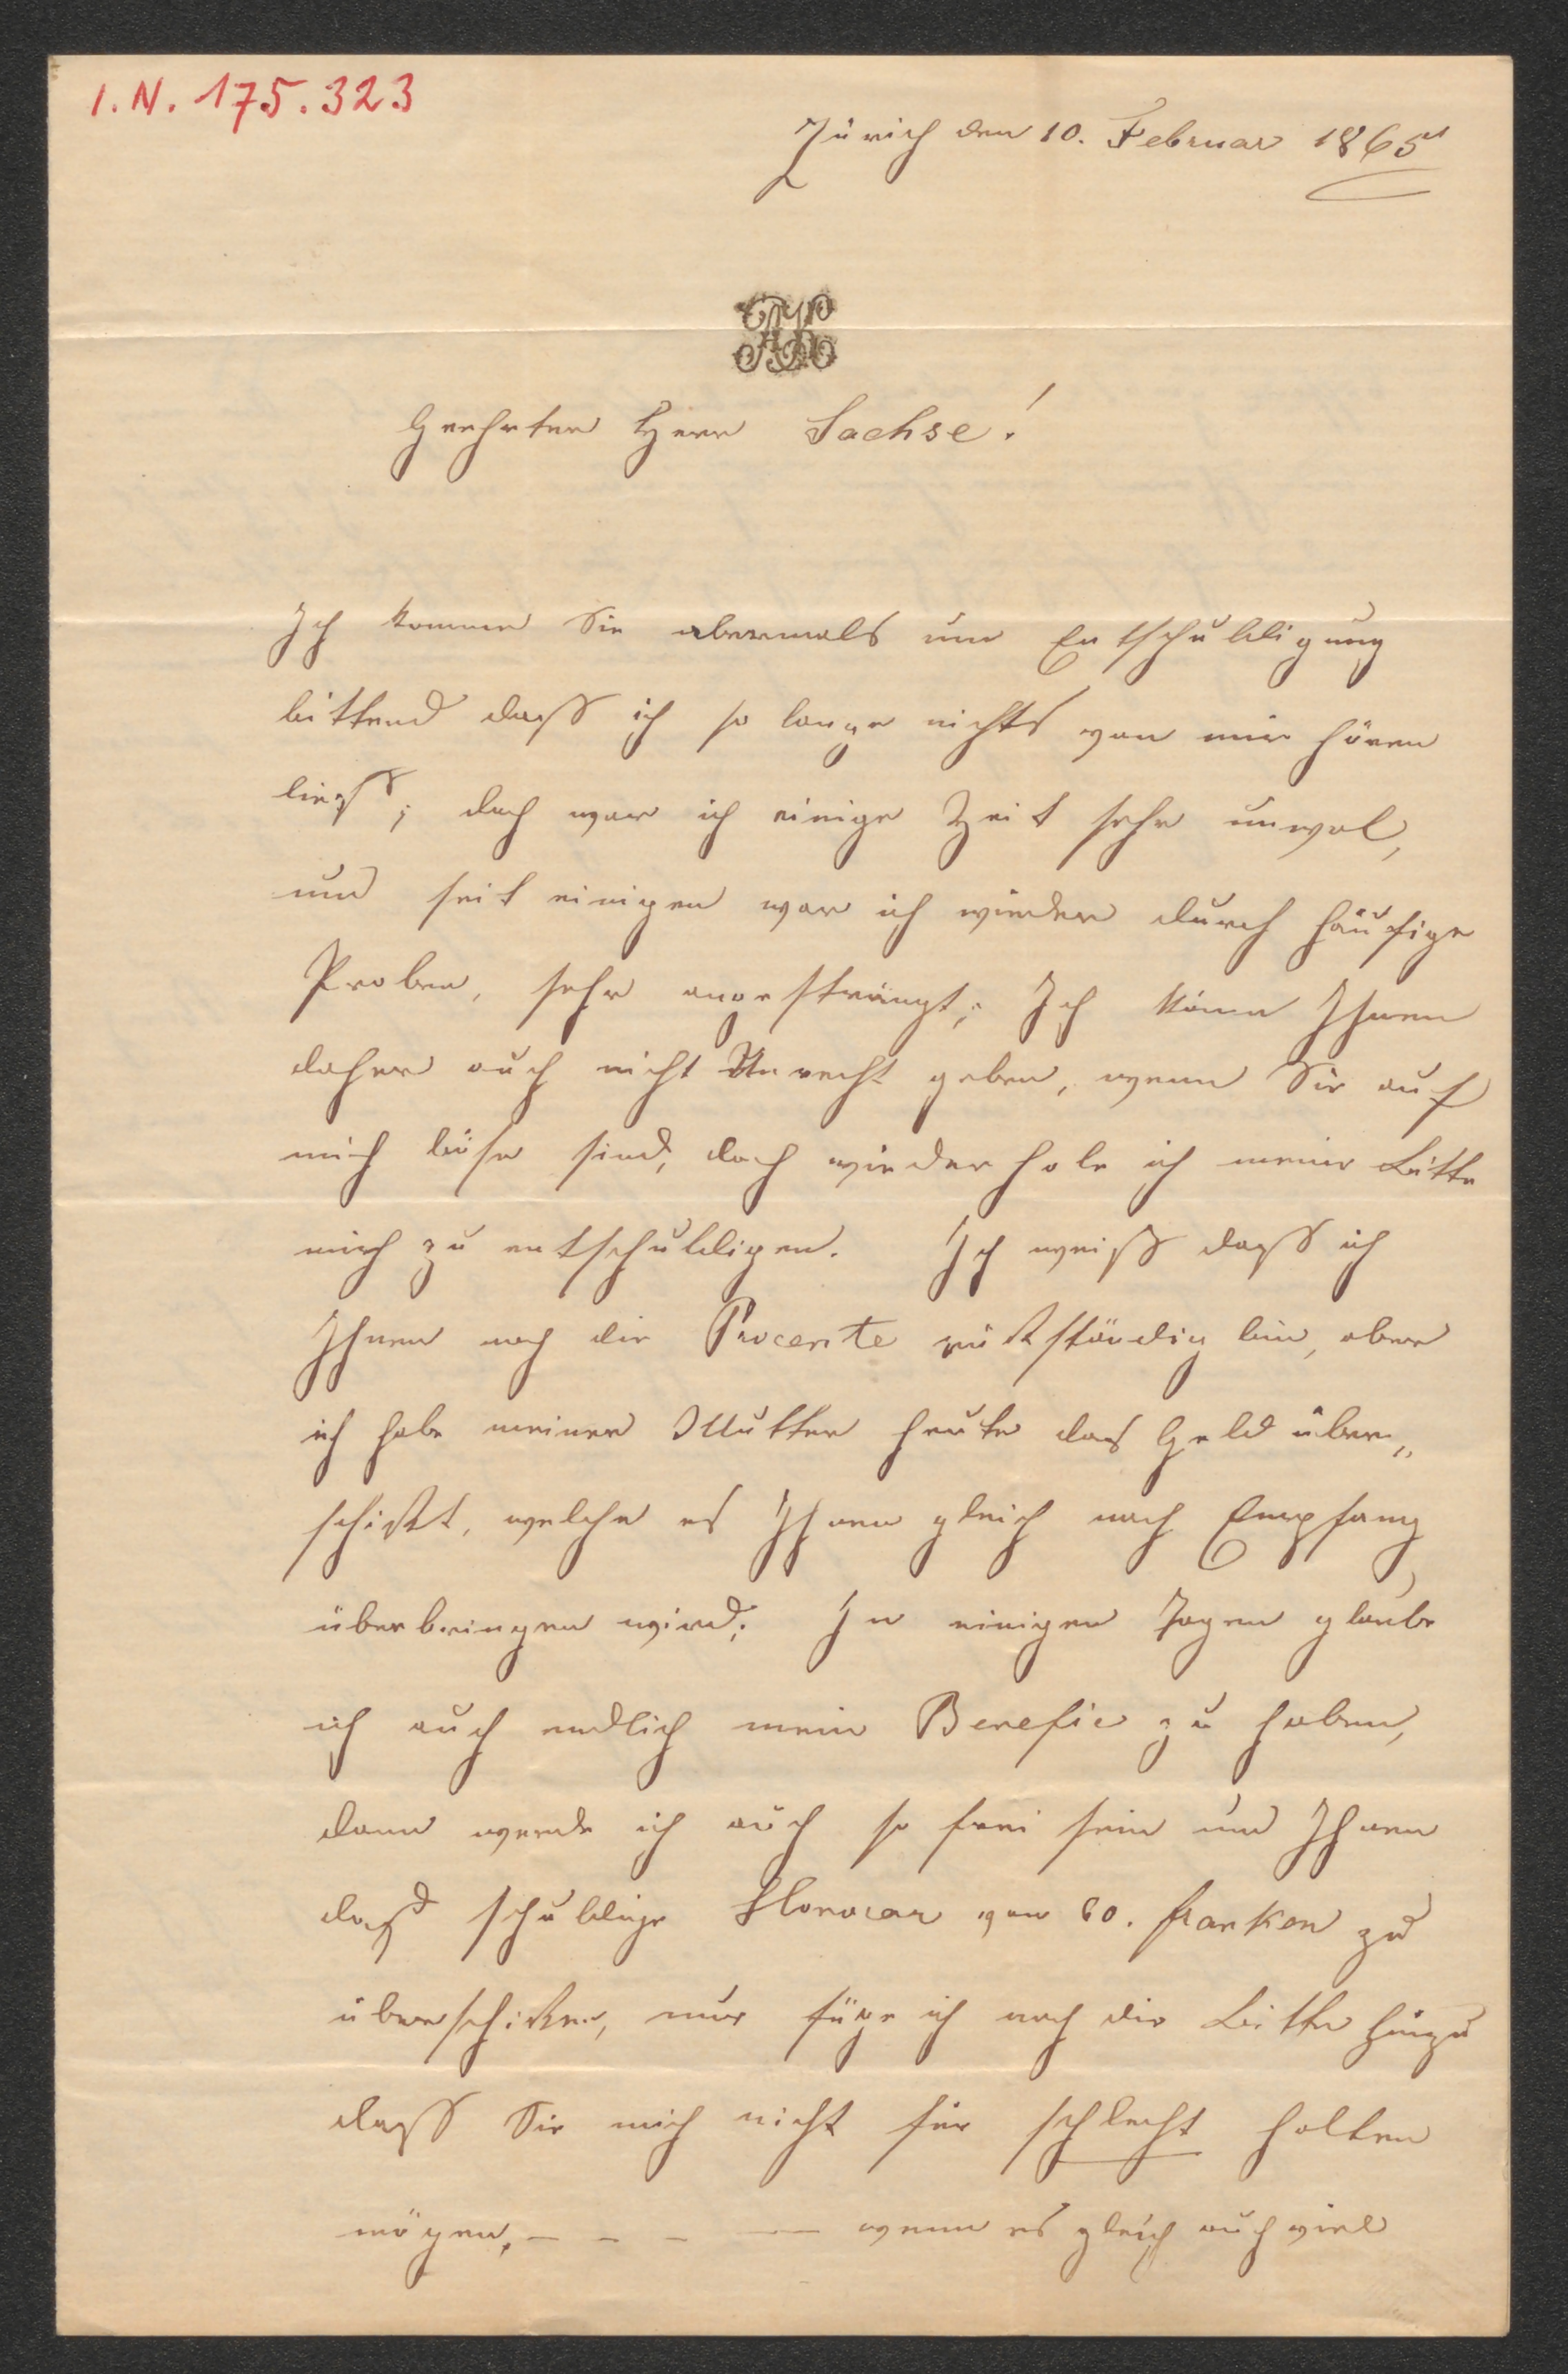 I.N. 175.323
Zürich den 10. Februar 1865
Geehrter Herr Sachse!
Ich komme Sie abermals um Entschuldigung
bittend dass ich so lange nichts von mir hören
liess; doch war ich einige Zeit sehr unwol,
und seit einigen war ich wieder durch häufige
Proben, sehr angesträngt; Ich könn Ihnen
daher auch nicht Unrecht geben, wenn Sie auf
mich böse sind, doch wiederhole ich meine Bitte
mich zu entschuldigen. Ich weiss dass ich
Ihnen noch die Procente rükständig bin, aber
ich habe meiner Mutter heute das Geld über„
schikt, welche es Ihnen gleich nach Empfang
überbringen wird; In einigen Tagen glaube
ich auch endlich mein Benefic zu haben,
dann werde ich auch so frei sein und Ihnen
dass schuldige Honorar von 60. franken zu
überschiken, nur füge ich noch die Bitte hinzu
dass Sie mich nicht für schlecht halten
mögen, – – – — wenn es gleich auch viel